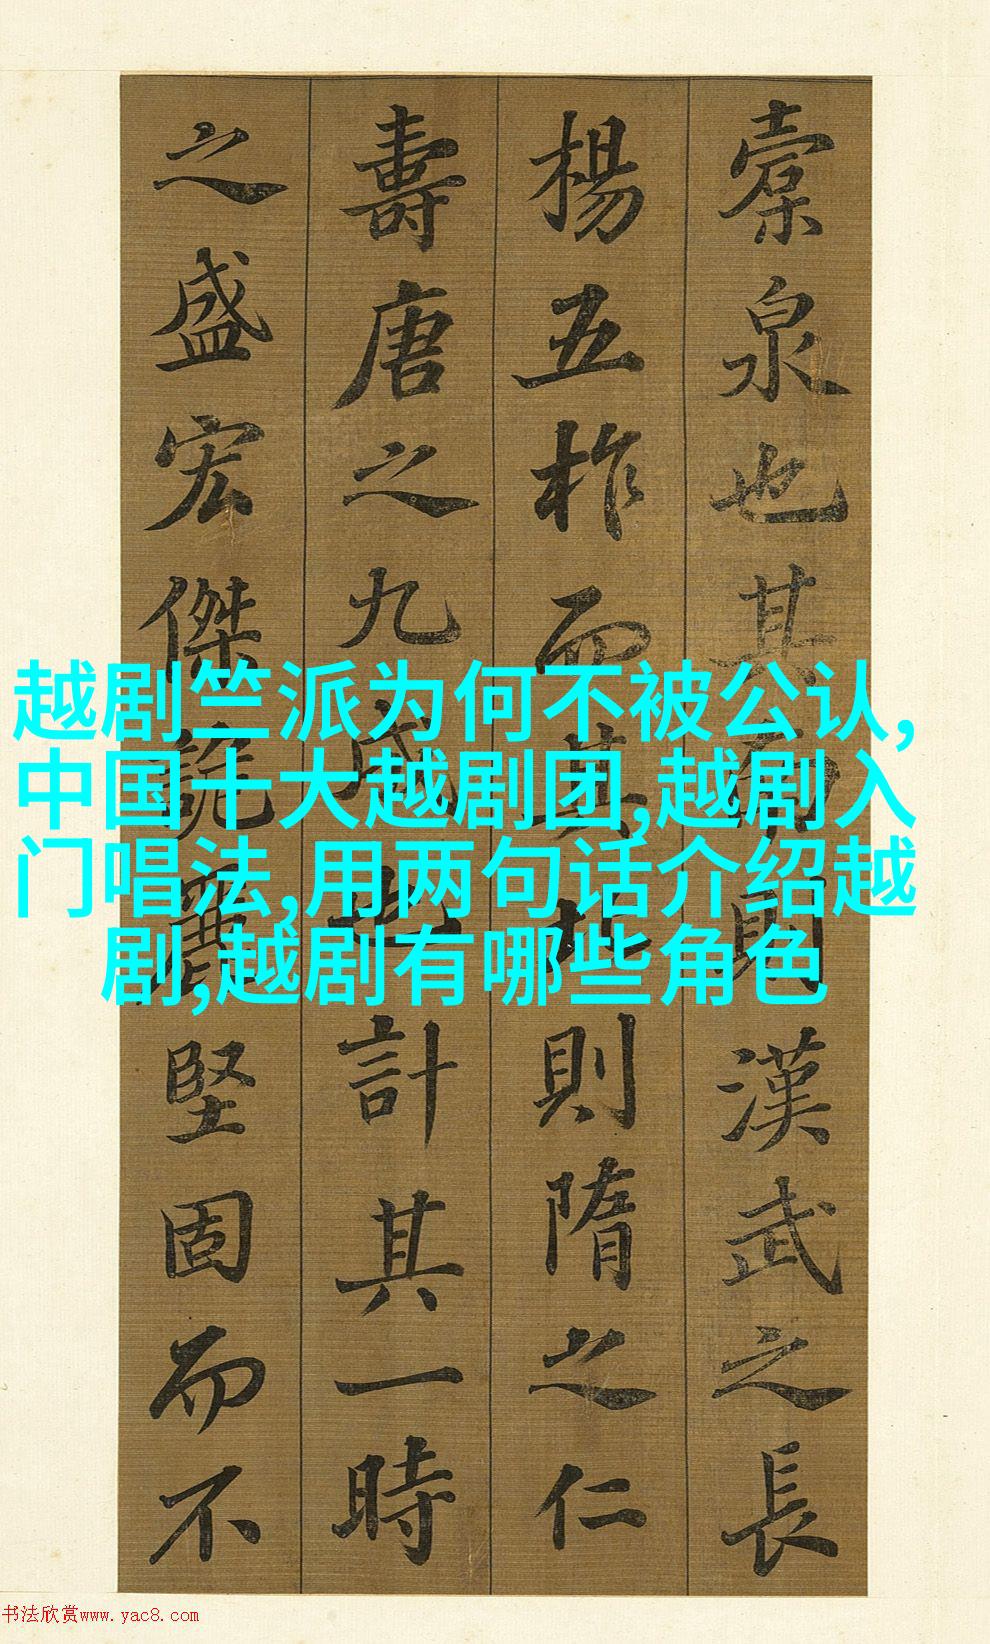 槖泉也其南則漢武之長
楊五柞而其北則隋之仁
壽唐之九成也計其一時
之盛宏傑詭麗堅固而不
越剧竺派为何不被公认,
中国十大越剧团,越剧入
门唱法,用两句话介绍越
剧,越剧有哪些角色
书法欣赏www.yac8.com